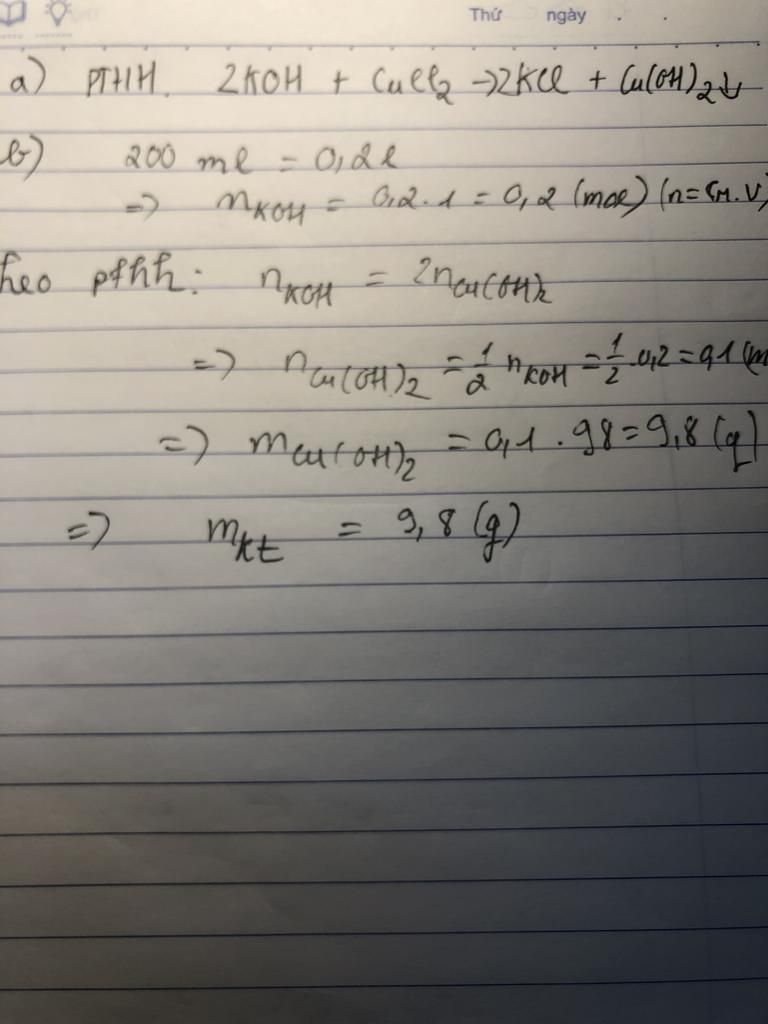 Thứ ngày . .
a) PTHH. 2KOH + CuCl2 → 2KCl + Cu(OH)2↓
b) 200 ml = 0,2l
=> nKOH = 0,2.1 = 0,2 (mol) (n=CM.V)
heo pthh: nKOH = 2nCu(OH)2
=> nCu(OH)2 = 1/2 nKOH = 1/2.0,2 = 0,1 (m
=> mCu(OH)2 = 0,1 . 98 = 9,8 (g)
=> mkt = 9,8 (g)